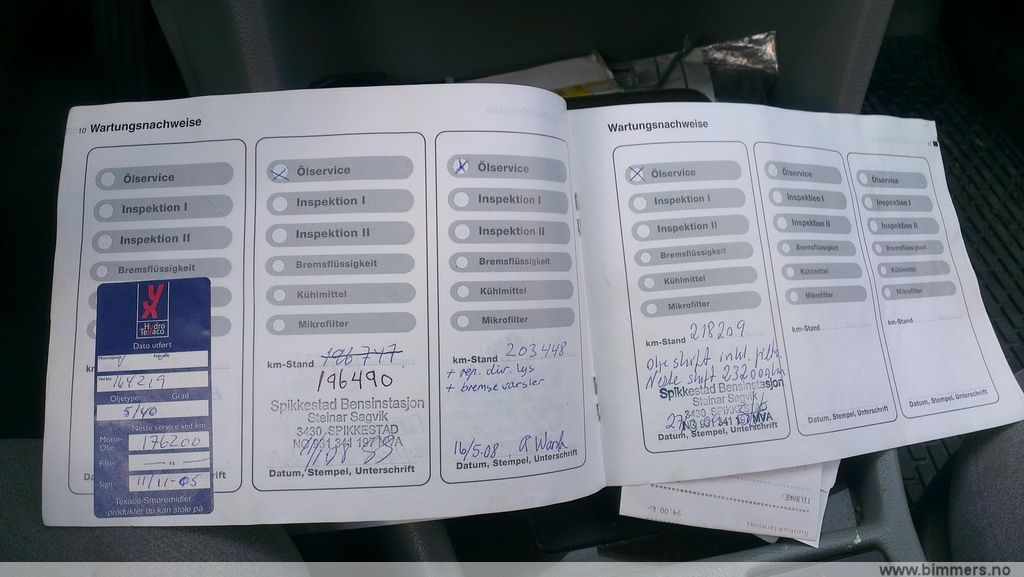 10 Wartungsnachweise
Ölservice
Inspektion I
Inspektion II
Bremsflüssigkeit
Hydro
Texaco
Dato utført
Ved km. 164219
Oljetype Grad
5/40
Neste service ved km
Motor-
Olje 176200
Filter — " —
Sign. 11/11-05
Texaco Smøremidler
-produkter du kan stole på
Ölservice
Inspektion I
Inspektion II
Bremsflüssigkeit
Kühlmittel
Mikrofilter
km-Stand 196747
196490
Spikkestad Bensinstasjon
Steinar Sagvik
3430 SPIKKESTAD
Datum, Stempel, Unterschrift
Ölservice
Inspektion I
Inspektion II
Bremsflüssigkeit
Kühlmittel
Mikrofilter
km-Stand 203448
+ rep. div. lys
+ bremsevarsler
16/5-08
Datum, Stempel, Unterschrift
Wartungsnachweise
11
Ölservice
Inspektion I
Inspektion II
Bremsflüssigkeit
Kühlmittel
Mikrofilter
km-Stand 218209
Olje skift inkl. filter
Neste skift 232000km
Spikkestad Bensinstasjon
Steinar Sagvik
3430 SPIKKESTAD
Datum, Stempel, Unterschrift
Ölservice
Inspektion I
Inspektion II
Bremsflüssigkeit
Kühlmittel
Mikrofilter
km-Stand
Datum, Stempel, Unterschrift
Ölservice
Inspektion I
Inspektion II
Bremsflüssigkeit
Kühlmittel
Mikrofilter
km-Stand
Datum, Stempel, Unterschrift
TILBAKE:
94.00 kr
www.bimmers.no